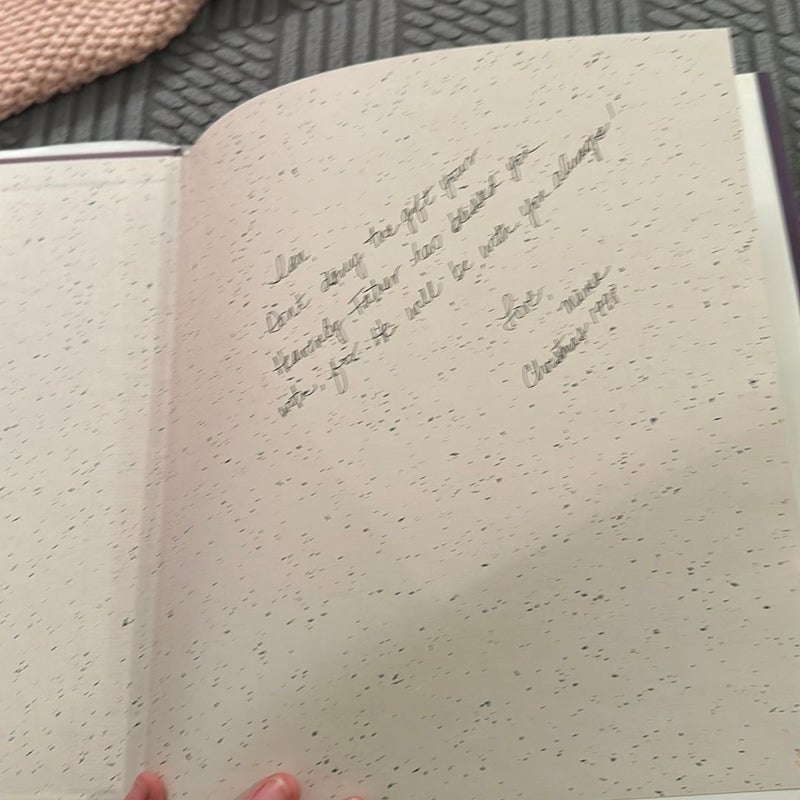 Don't deny the gift your
Heavenly Father has blessed you
with, for He will be with you always!
Love,
Mimi
Christmas